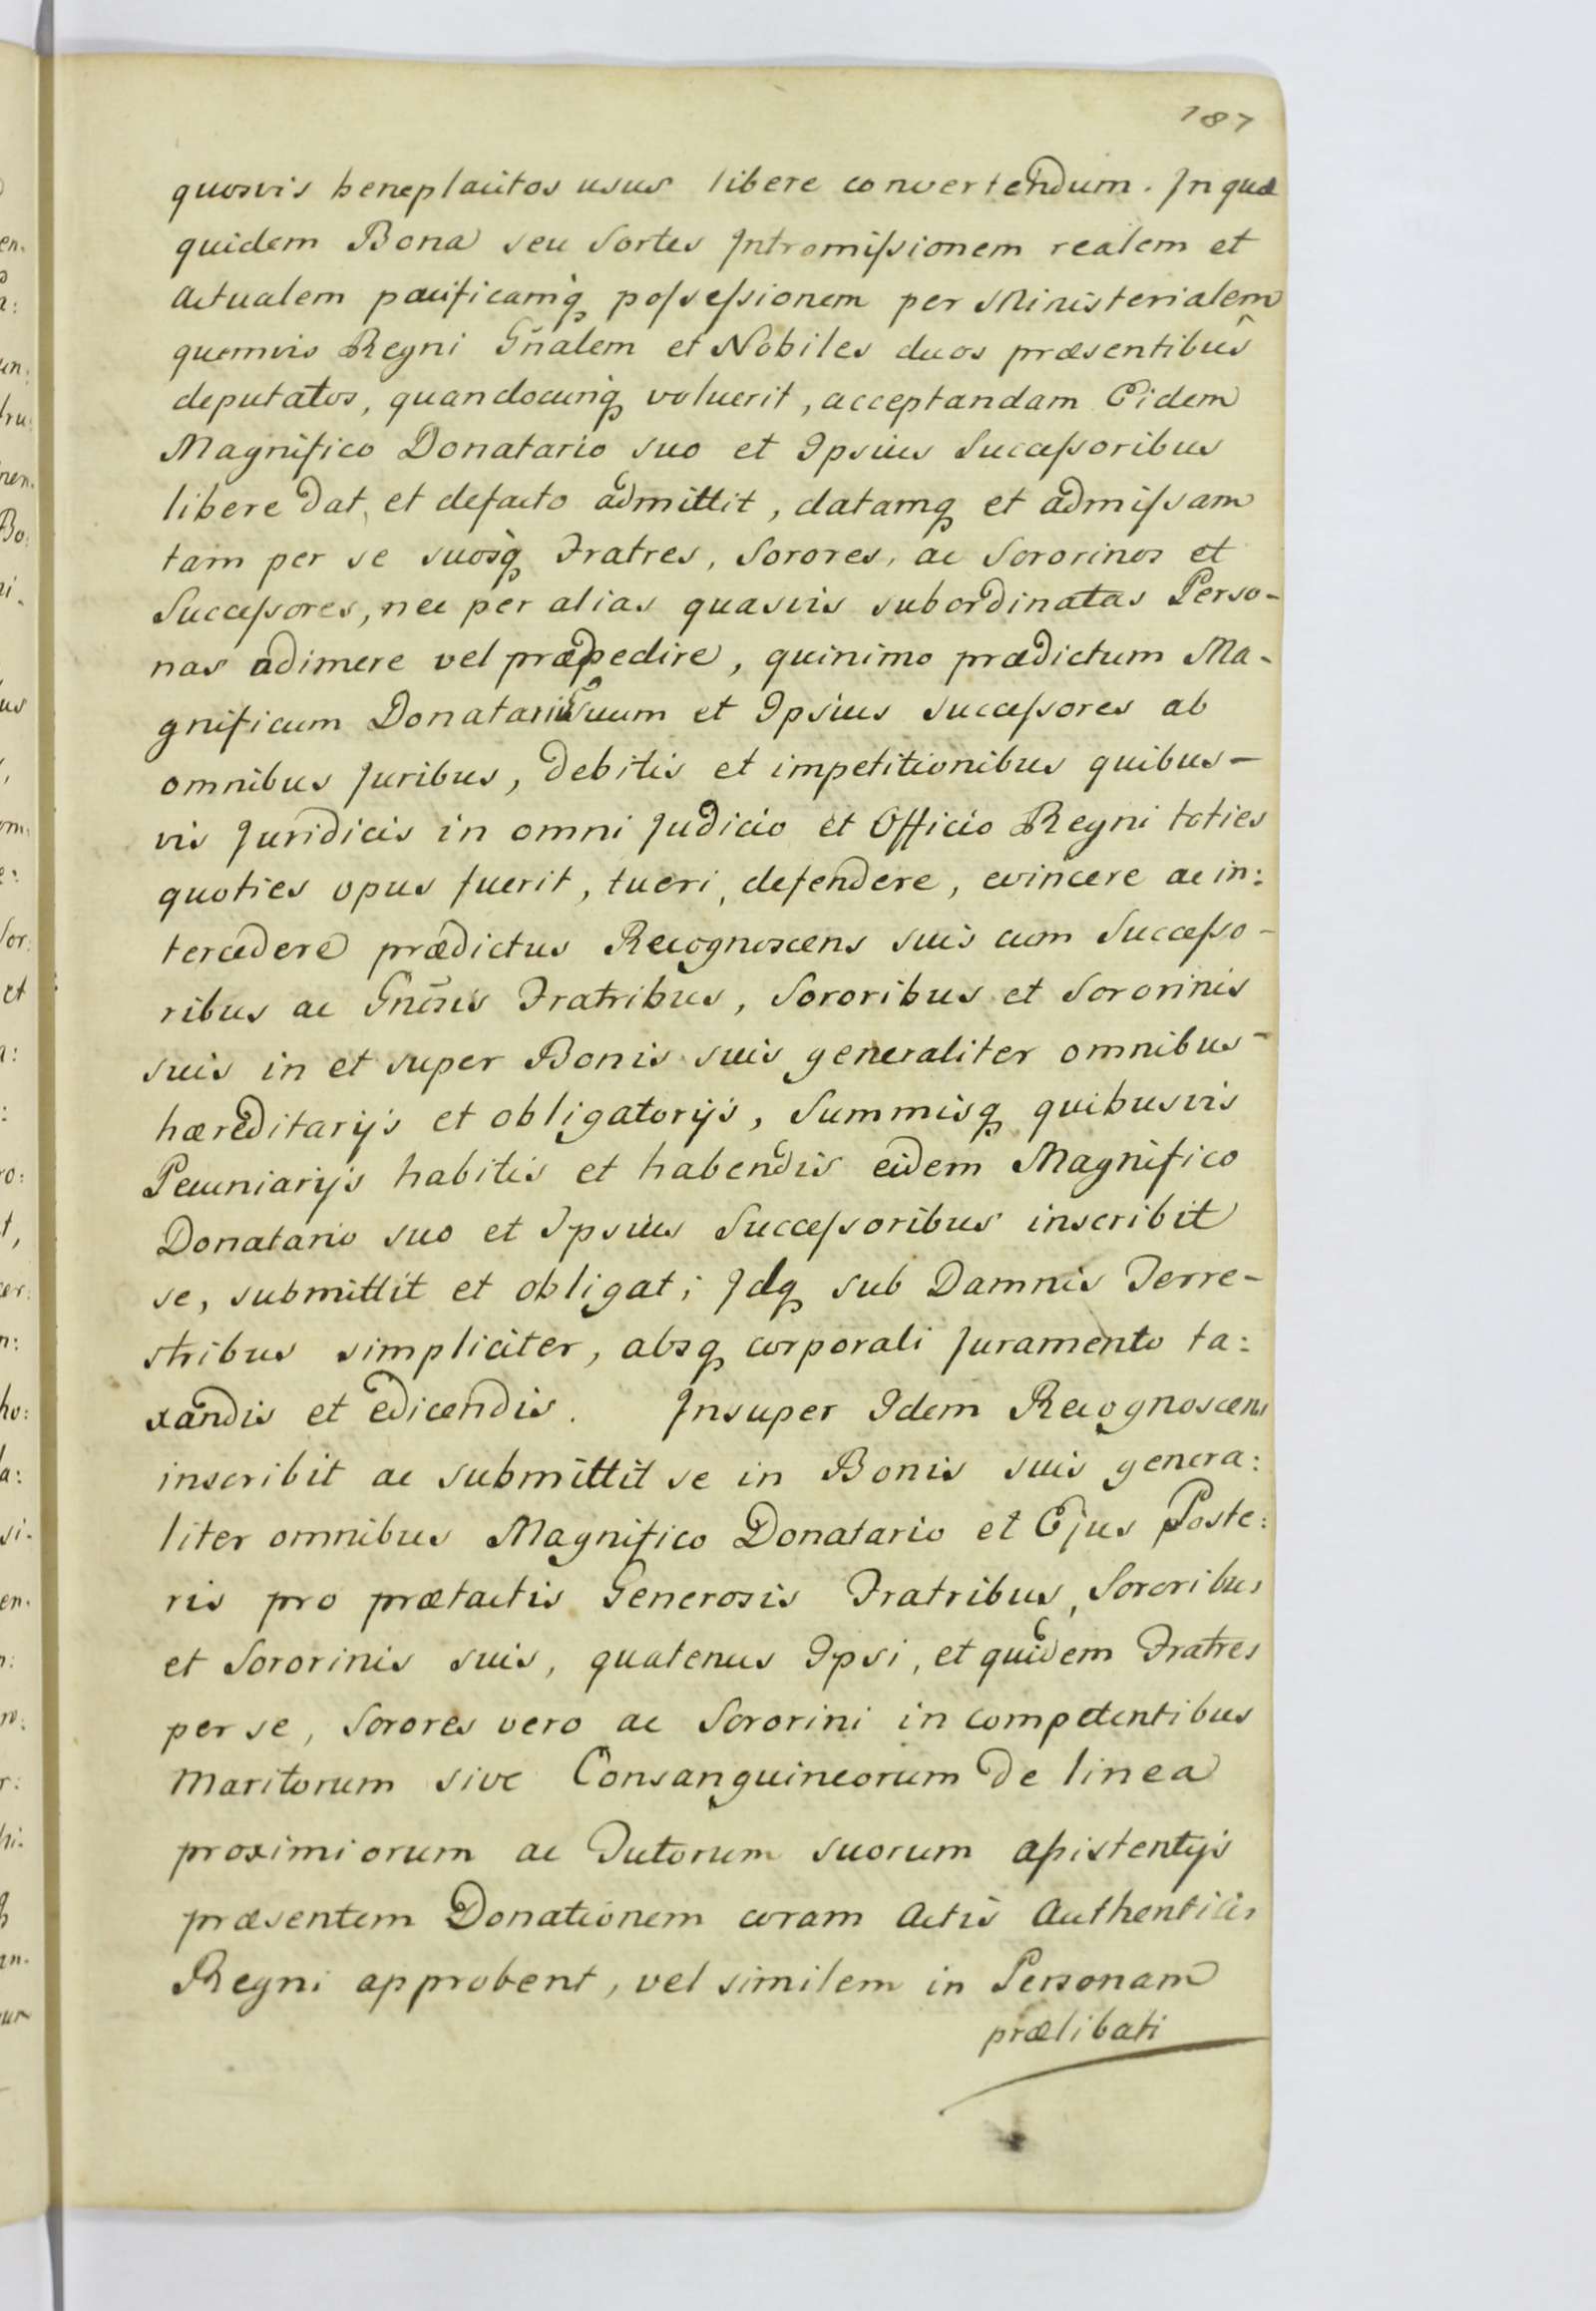 187
quosvis beneplacitos usus libere convertendum. In quæ
quidem Bona seu Sortes Intromissionem realem et
actualem pacificamq̀ꝫ possessionem per Ministerialem
quemvis Regni Gñalem et Nobiles duos præsentibus
deputatos, quandocunq̀ꝫ voluerit, acceptandam Eidem
Magnifico Donatario suo et Ipsius Successoribus
libere dat, et defacto admittit, datamqꝫ et admissam
tam per se suosq̀ꝫ Fratres, Sorores, ac Sororinos et
Successores, nec per alias quasvis subordinatas Perso-
nas adimere vel præpedire, quinimo prædictum Ma-
gnificum Donatariũ Suum et Ipsius successores ab
omnibus Juribus, debitis et impetitionibus quibus-
vis Juridicis in omni Judicio et Officio Regni toties
quoties opus fuerit, tueri, defendere, evincere ac in:
tercedere prædictus Recognoscens suis cum Successo-
ribus ac Gnõsis Fratribus, Sororibus et Sororinis
suis in et super Bonis suis generaliter omnibus-
hæreditarijs et obligatorijs, Summisqꝫ quibusvis
Pecuniarijs habitis et habendis eidem Magnifico
Donatario suo et Ipsius Successoribus inscribit
se, submittit et obligat; Idqꝫ sub Damnis Terre-
stribus simpliciter, absqꝫ corporali Juramento ta:
xandis et edicendis. Insuper Idem Recognoscens
inscribit ac submittit se in Bonis suis genera:
liter omnibus Magnifico Donatario et Ejus Poste:
ris pro prætactis Generosis Fratribus, Sororibus
et Sororinis suis, quatenus Ipsi, et quidem Fratres
per se, Sorores vero ac Sororini in competentibus
Maritorum sive Consanguineorum de linea
proximiorum ac Tutorum suorum assistentijs
præsentem Donationem coram Actis Authenticis
Regni approbent, vel similem in Personam
prælibati